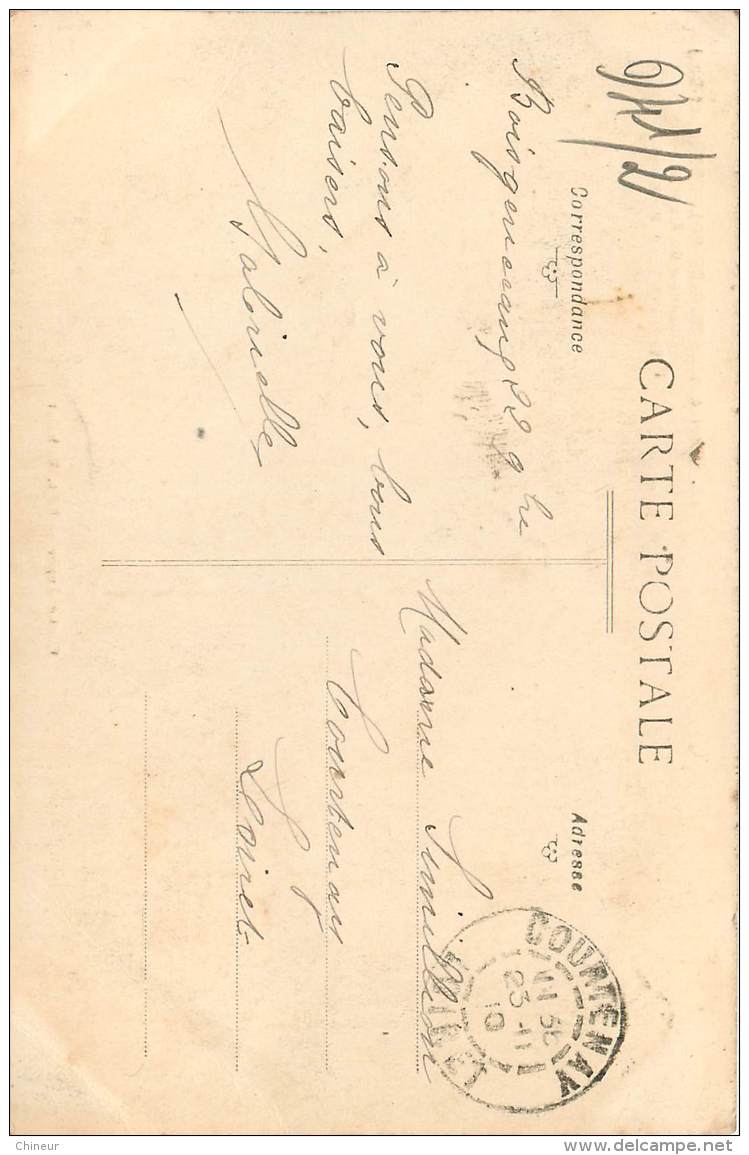 CARTE POSTALE
Correspondance
Adresse
941/21
22 9bre
Pensons à vous, bons
baisers,
Gabrielle
Madame
Courtenay
Loiret
COURTENAY
23-11
10
LOIRET
Chineur
delcampe.net